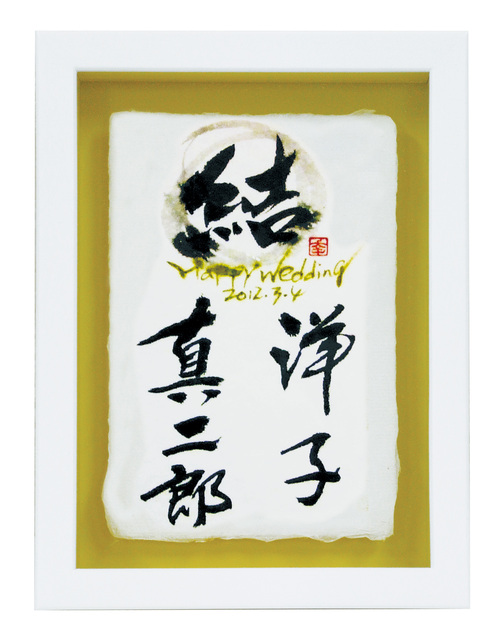 結
Happy Wedding
2012.3.4
洋子
真二郎